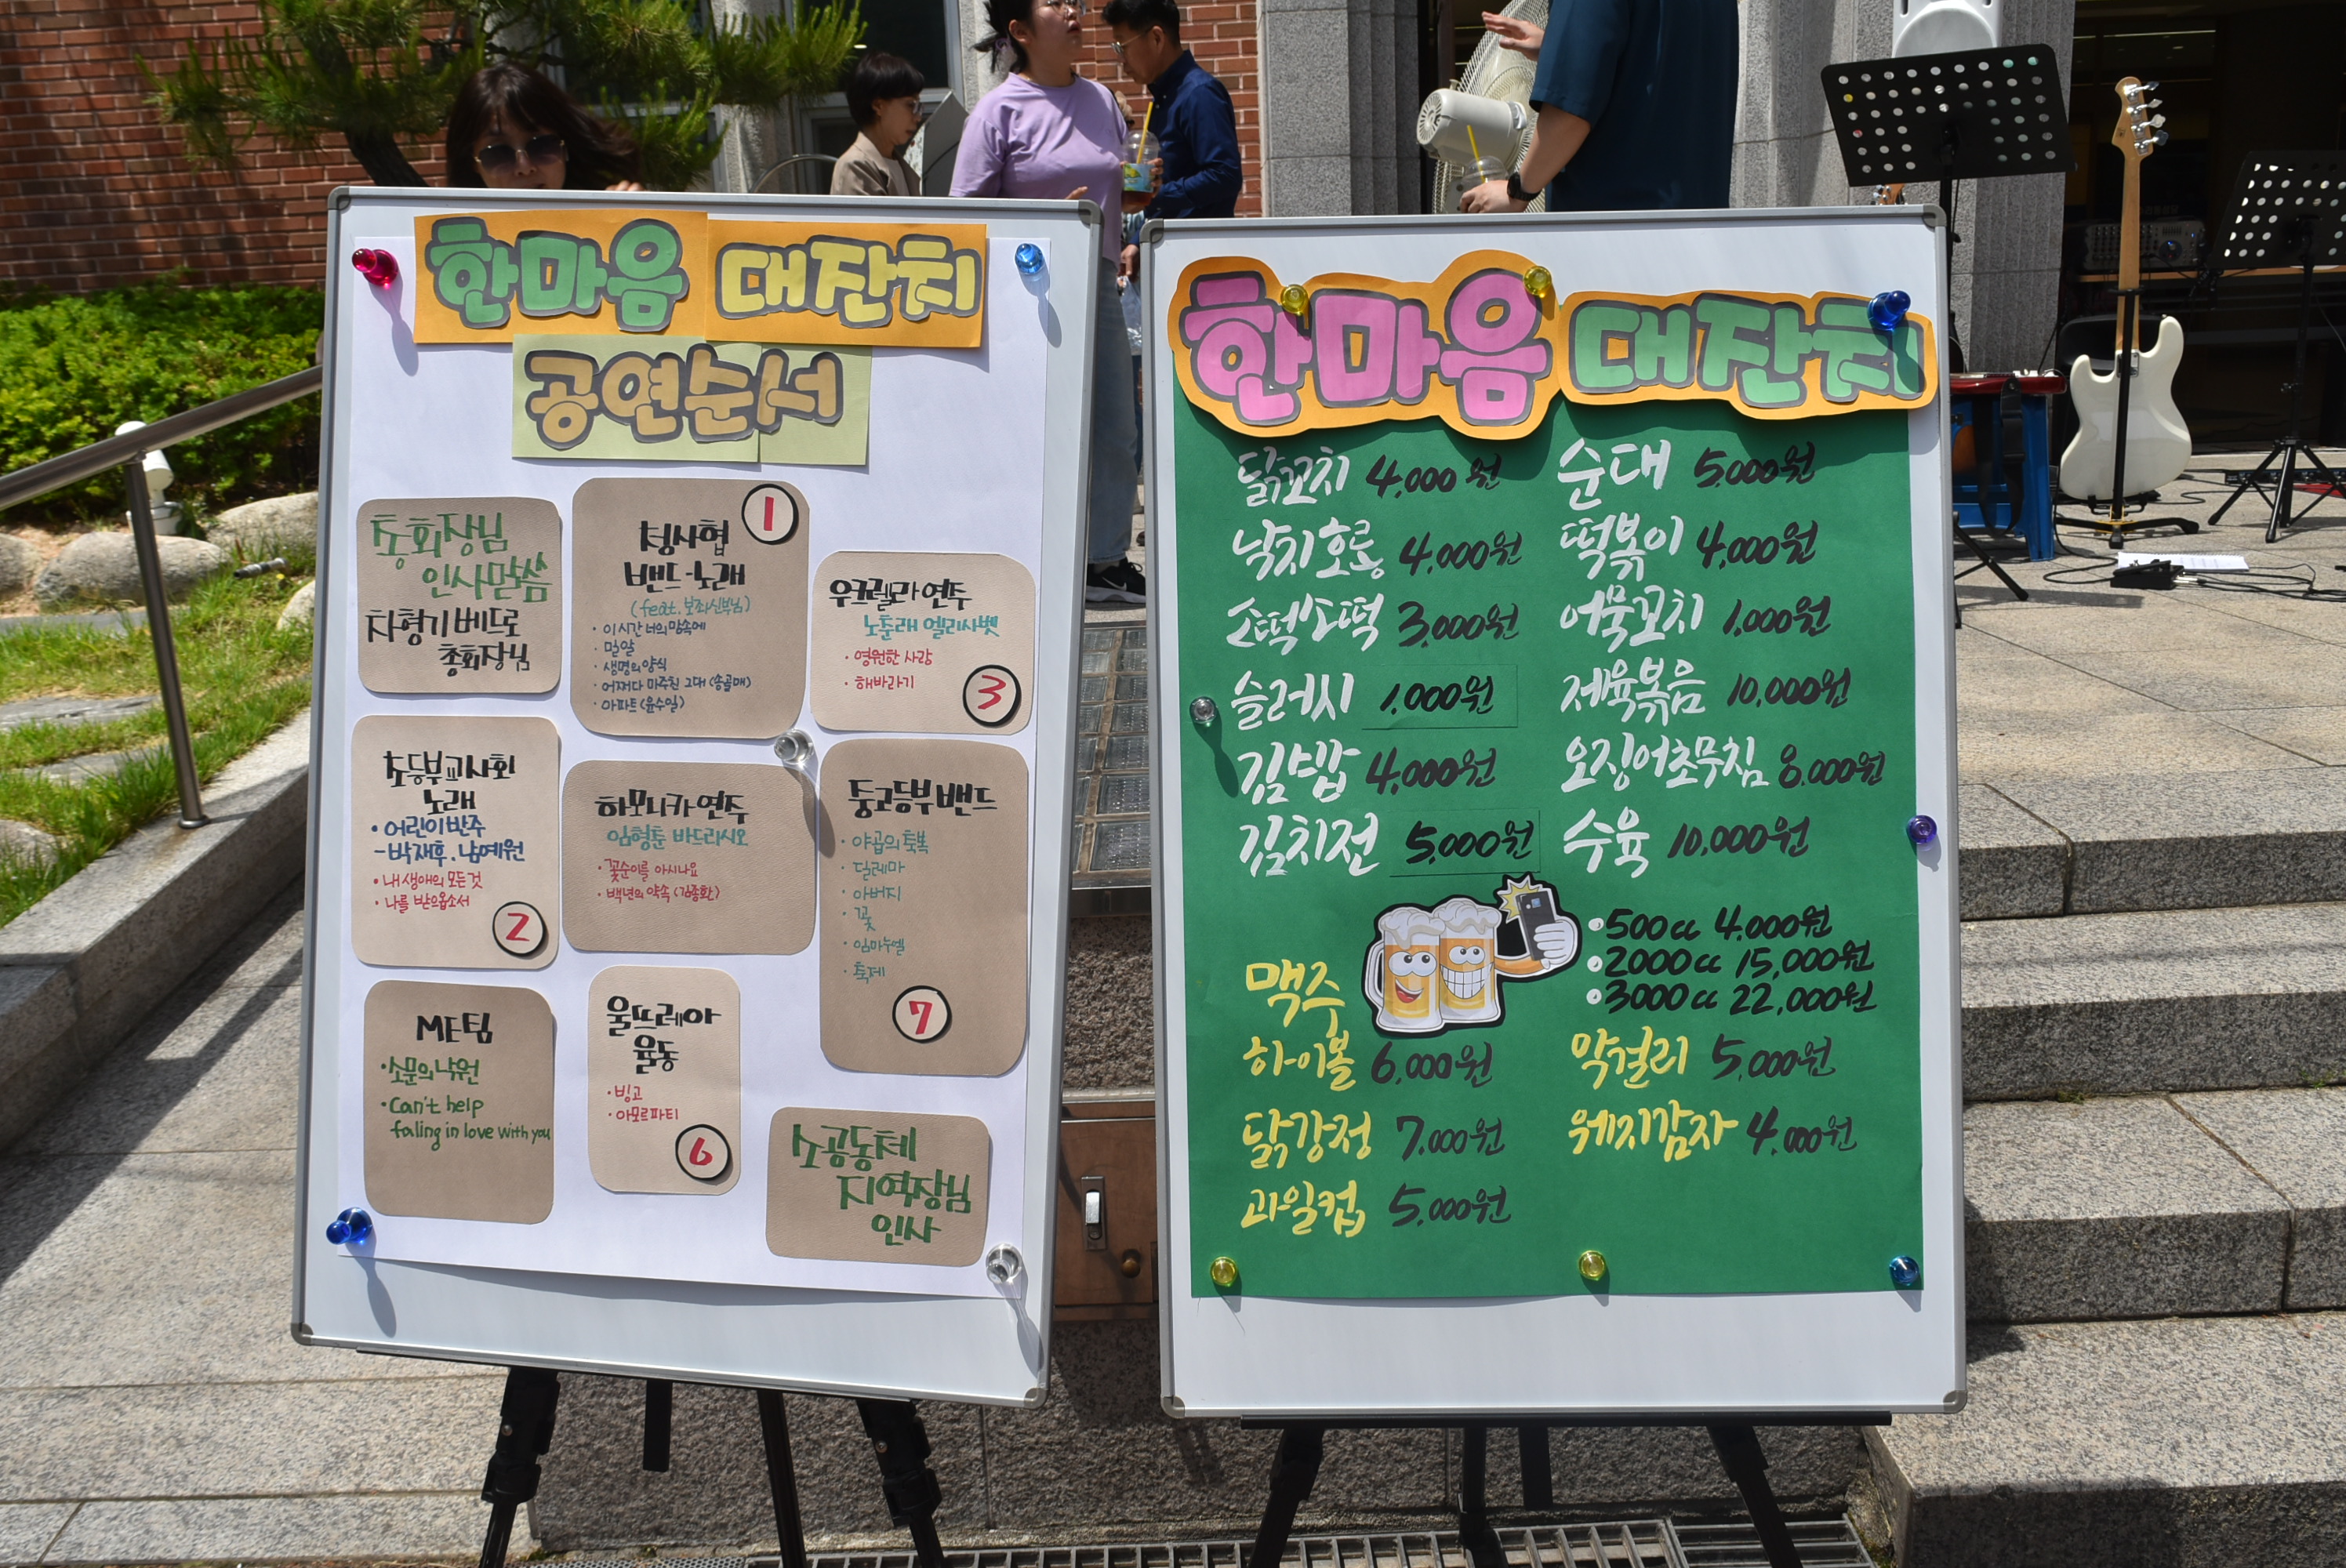 한마음 대잔치
공연순서
총회장님
인사말씀
차형기 베드로
총회장님
1
청사협
밴드-노래
(feat. 보좌신부님)
· 이 시간 너의 맘속에
· 밀알
· 생명의 양식
· 어쩌다 마주친 그대 (송골매)
· 아파트 (윤수일)
우크렐라 연주
노춘래 엘리사벳
· 영원한 사랑
· 해바라기
3
초등부 교사회
노래
• 어린이 반주
- 박재후. 남예원
• 내 생애의 모든 것
• 나를 받으옵소서
2
하모니카 연주
임형툰 바드리시오
· 꽃순이를 아시나요
· 백년의 약속 (김종환)
중고등부 밴드
· 야곱의 축복
· 딜레마
· 아버지
· 꽃
· 임마누엘
· 축제
7
ME팀
· 소문의 낙원
· Can't help
faling in love with you
울뜨레아
율동
· 빙고
· 아모르파티
6
소공동체
지역장님
인사
한마음 대잔치
닭꼬치 4,000원 순대 5,000원
낙지호롱 4,000원 떡볶이 4,000원
소떡소떡 3,000원 어묵꼬치 1,000원
슬러시 1,000원 제육볶음 10,000원
김밥 4,000원 오징어초무침 8,000원
김치전 5,000원 수육 10,000원
맥주
• 500cc 4,000원
• 2000cc 15,000원
• 3000cc 22,000원
하이볼 6,000원 막걸리 5,000원
닭강정 7,000원 웨지감자 4,000원
과일컵 5,000원